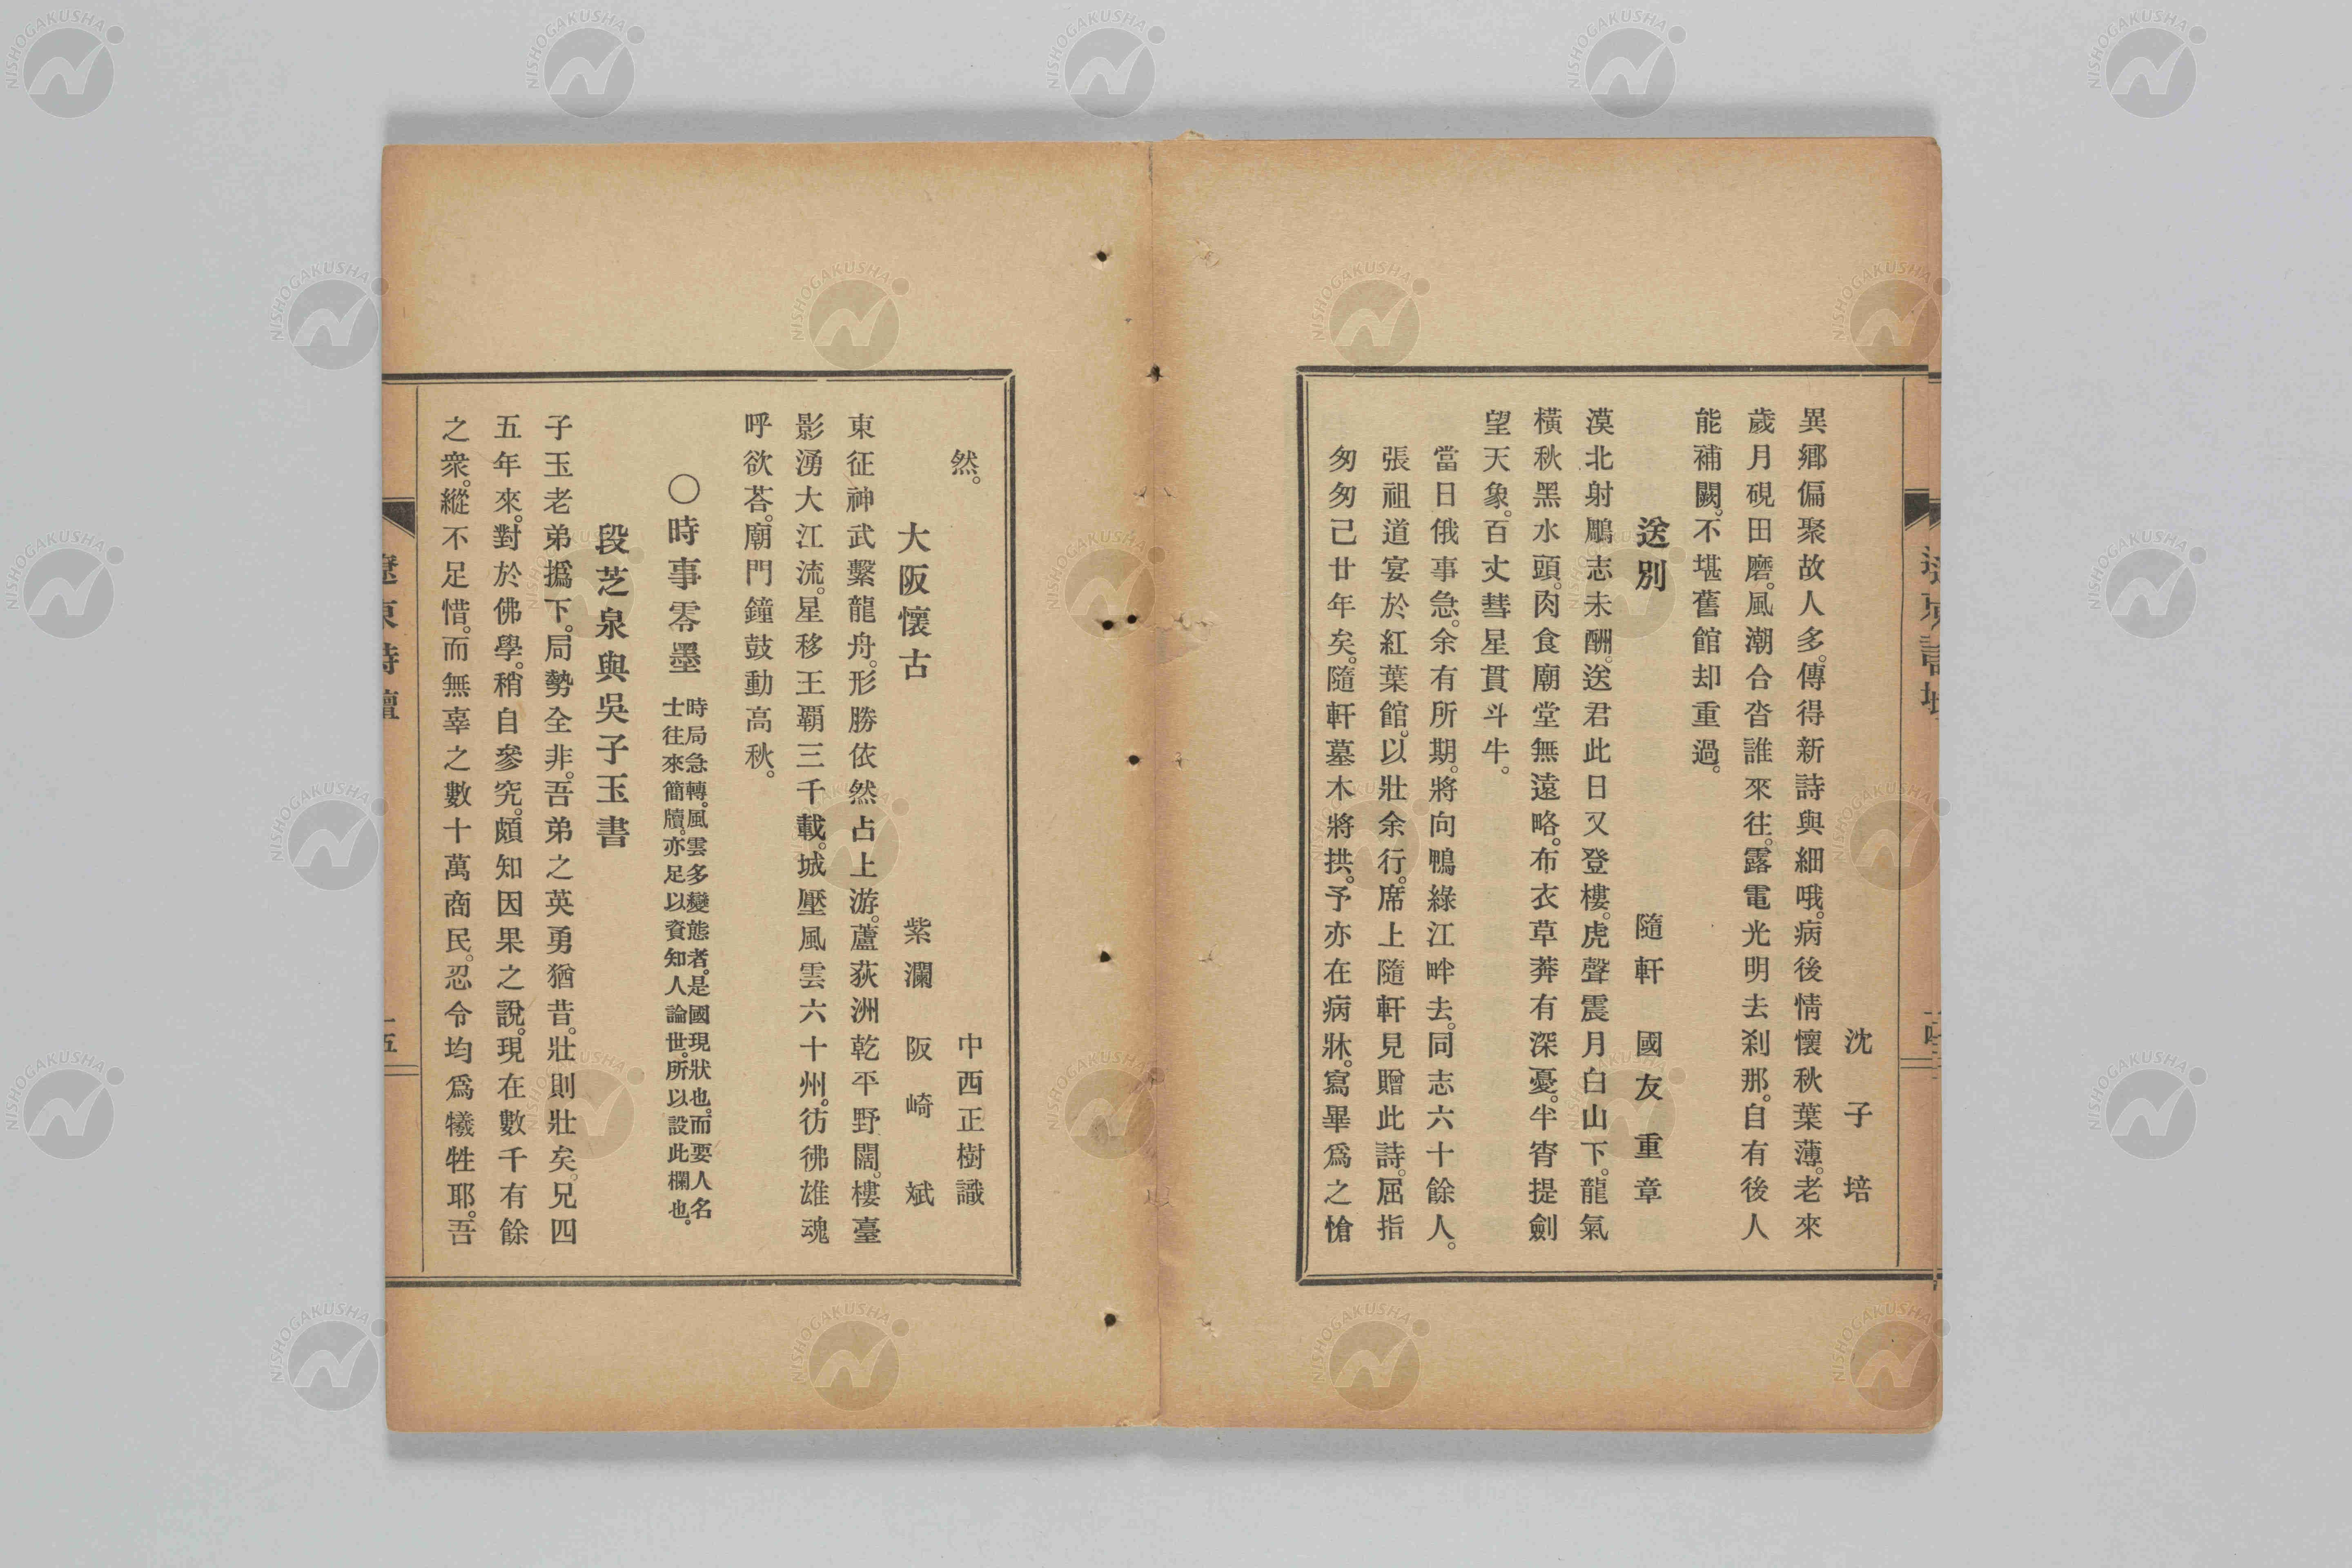 沈子培
異鄉偏聚故人多。傳得新詩與細哦。病後情懷秋葉薄。老來
歲月硯田磨。風潮合沓誰來往。露電光明去刹那。自有後人
能補闕。不堪舊館却重過。
送別
隨軒 國友重章
漠北射鵰志未酬。送君此日又登樓。虎聲震月白山下。龍氣
橫秋黑水頭。肉食廟堂無遠略。布衣草莽有深憂。半宵提劍
望天象。百丈彗星貫斗牛。
當日俄事急。余有所期。將向鴨綠江畔去。同志六十餘人。
張祖道宴於紅葉館。以壯余行。席上隨軒見贈此詩。屈指
匆匆己廿年矣。隨軒墓木將拱。予亦在病牀。寫畢爲之愴
然。
中西正樹識
大阪懷古
紫瀾 阪崎斌
東征神武繫龍舟。形勝依然占上游。蘆荻洲乾平野闊。樓臺
影湧大江流。星移王覇三千載。城壓風雲六十州。彷彿雄魂
呼欲荅。廟門鐘鼓動高秋。
○時事零墨
時局急轉。風雲多變態者。是國現狀也。而要人名
士往來簡牘。亦足以資知人論世。所以設此欄也。
段芝泉與吳子玉書
子玉老弟撝下。局勢全非。吾弟之英勇猶昔。壯則壯矣。兄四
五年來。對於佛學。稍自參究。頗知因果之說。現在數千有餘
之衆。縱不足惜。而無辜之數十萬商民。忍令均爲犧牲耶。吾
遼東詩壇
五
NISHOGAKUSHA